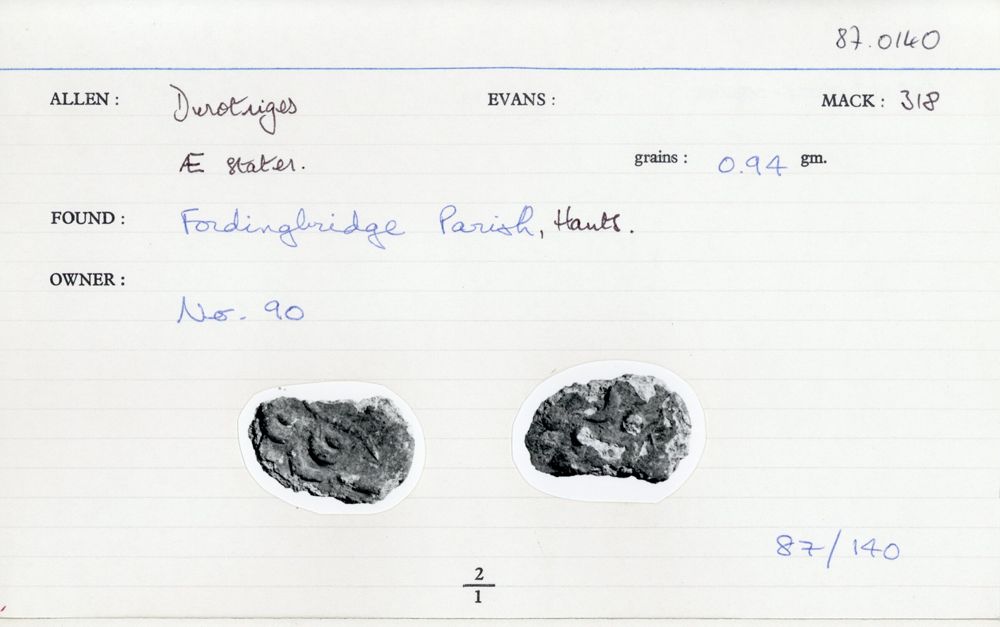 87.0140
ALLEN : Durotriges EVANS : MACK : 318
Æ stater. grains : 0.94 gm.
FOUND : Fordingbridge Parish, Hants.
OWNER :
No. 90
87/140
2
1